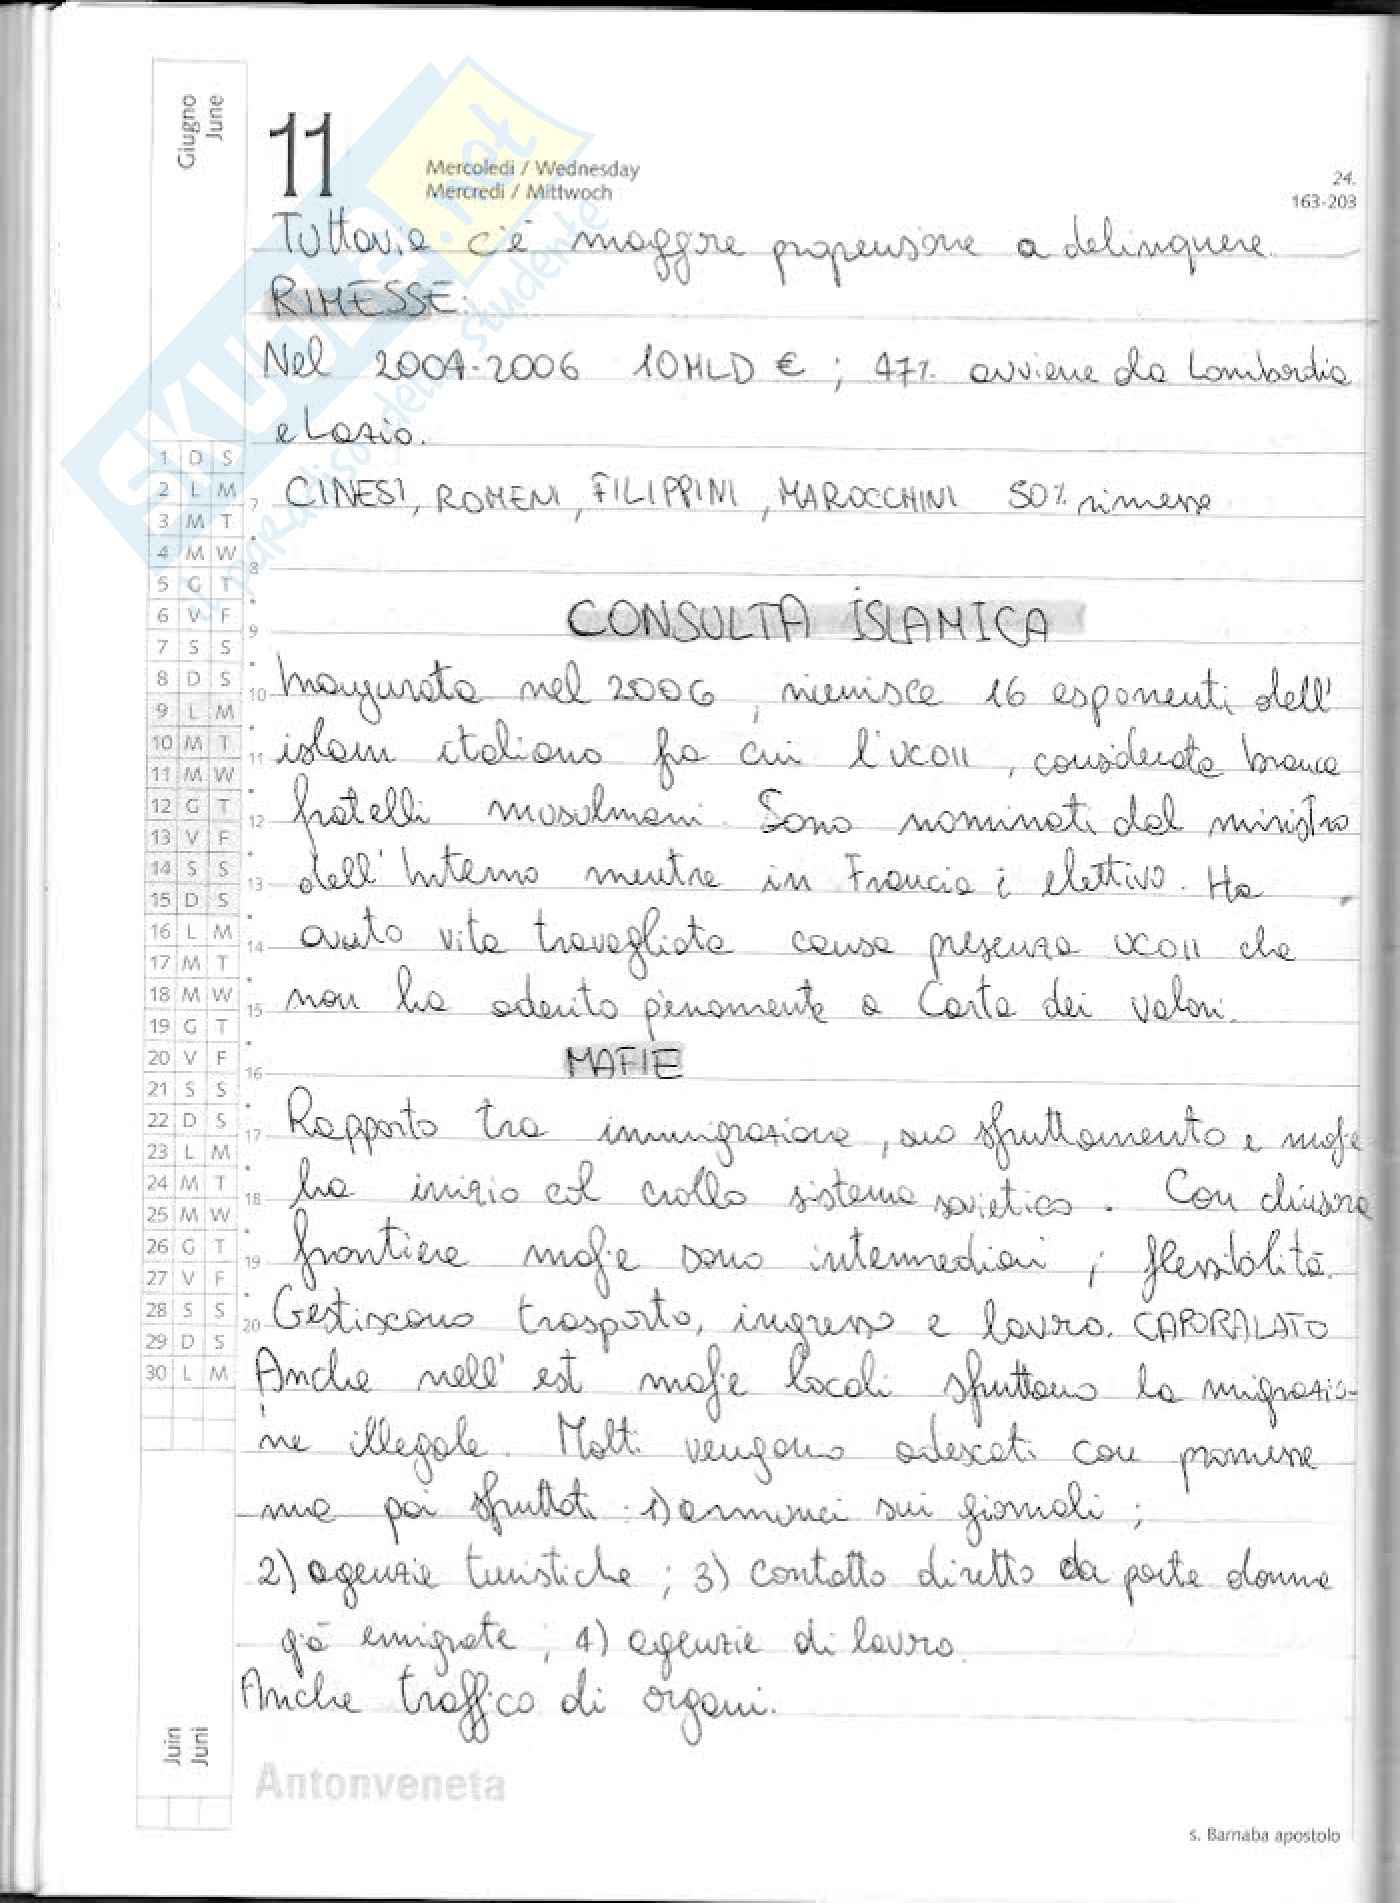 Giugno
June
11
Mercoledì / Wednesday
Mercredi / Mittwoch
24.
163-203
SKUOLA.net
il paradiso dello studente
Tuttavia c'è maggiore propensione a delinquere.
RIMESSE:
Nel 2004-2006 10 MLD € ; 47% avviene da Lombardia
e Lazio.
CINESI, ROMENI, FILIPPINI, MAROCCHINI 50% rimesse
CONSULTA ISLAMICA
Inaugurata nel 2006, riunisce 16 esponenti dell'
islam italiano fra cui l'UCOII, considerata branca
fratelli musulmani. Sono nominati dal ministro
dell'Interno mentre in Francia è elettivo. Ha
avuto vita travagliata causa presenza UCOII che
non ha aderito pienamente a Carta dei valori.
MAFIE
Rapporto tra immigrazione, suo sfruttamento e mafie
ha inizio col crollo sistema sovietico. Con chiusura
frontiere mafie sono intermediari ; flessibilità.
Gestiscono trasporto, ingresso e lavoro. CAPORALATO
Anche nell'est mafie locali sfruttano la migrazio-
ne illegale. Molti vengono adescati con promesse
ma poi sfruttati: 1) annunci sui giornali ;
2) agenzie turistiche ; 3) contatto diretto da parte donne
già emigrate ; 4) agenzie di lavoro.
Anche traffico di organi.
1 D S
2 L M
3 M T
4 M W
5 G T
6 V F
7 S S
8 D S
9 L M
10 M T
11 M W
12 G T
13 V F
14 S S
15 D S
16 L M
17 M T
18 M W
19 G T
20 V F
21 S S
22 D S
23 L M
24 M T
25 M W
26 G T
27 V F
28 S S
29 D S
30 L M
7
8
9
10
11
12
13
14
15
16
17
18
19
20
Juin
Juni
Antonveneta
s. Barnaba apostolo